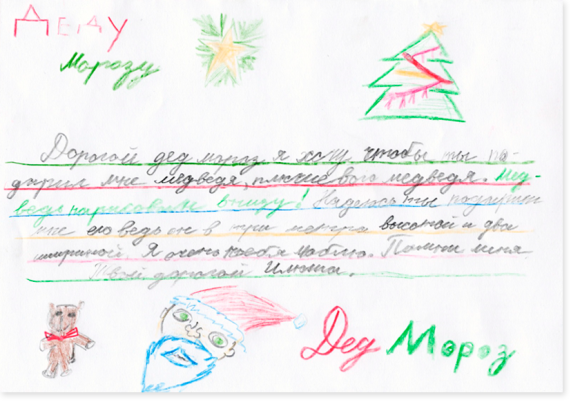 Деду
Морозу
Дорогой дед мороз я хочу чтобы ты по-
дарил мне медведя, плюшевого медведя. Мед-
ведь нарисован внизу! Надеюсь ты подаришь
мне его ведь он в три метра высотой и два
шириной. Я очень тебя люблю. Помни меня
Твой дорогой Илюша.
Дед Мороз